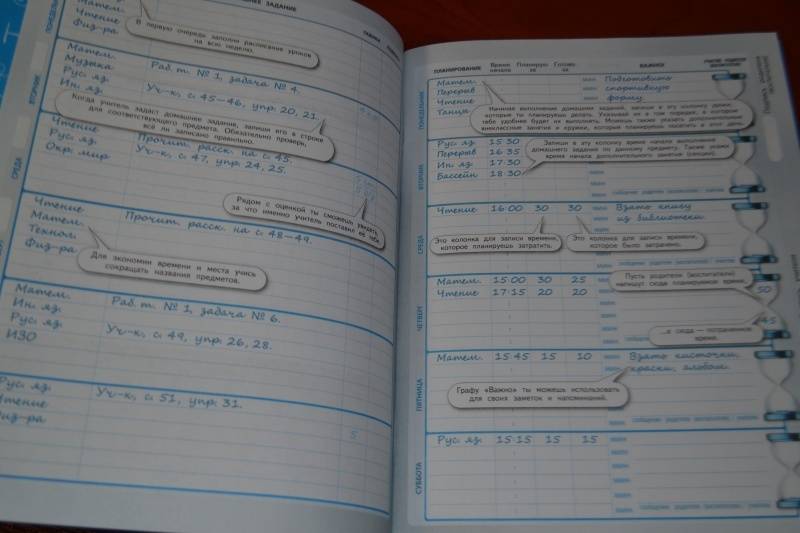 ДОМАШНЕЕ ЗАДАНИЕ
ПОНЕДЕЛЬНИК
Матем.
Чтение
Физ-ра
В первую очередь заполни расписание уроков
на всю неделю.
ВТОРНИК
Матем.
Музыка
Рус. яз.
Ин. яз.
Раб. т. № 1, задача № 4.
Уч-к, с. 45-46, упр. 20, 21.
Когда учитель задаст домашнее задание, запиши его в строке
для соответствующего предмета. Обязательно проверь,
всё ли записано правильно.
СРЕДА
Чтение
Рус. яз.
Окр. мир
Прочит. расск. на с. 45.
Уч-к, с. 47, упр. 24, 25.
Рядом с оценкой ты сможешь увидеть,
за что именно учитель поставил её тебе
Чтение
Матем.
Технол.
Физ-ра
Прочит. расск. на с. 48-49.
Для экономии времени и места учись
сокращать названия предметов.
Матем.
Ин. яз.
Рус. яз.
ИЗО
Раб. т. № 1, задача № 6.
Уч-к, с. 49, упр. 26, 28.
Рус. яз.
Чтение
Физ-ра
Уч-к, с. 51, упр. 31.
5
ПЛАНИРОВАНИЕ
Время начала
ВАЖНО!
ПОНЕДЕЛЬНИК
Матем.
Перерыв
Чтение
Танцы
Подготовить
спортивную
форму.
Начиная выполнение домашнего задания, запиши в эту колонку уроки,
которые ты планируешь делать. Указывай их в том порядке, в котором
тебе удобнее будет их выполнять. Можешь также указать дополнительные
внеклассные занятия и кружки, которые планируешь посетить в этот день.
ВТОРНИК
Рус. яз. 15 30
Перерыв 16 35
Ин. яз. 17:30
Бассейн 18 30
Запиши в эту колонку время начала выполнения
домашнего задания по данному предмету. Также укажи
время начала дополнительного занятия (секции).
СРЕДА
Чтение 16 00 30 30
Взять книгу
из библиотеки.
Это колонка для записи времени,
которое планируешь затратить.
Это колонка для записи времени,
которое было затрачено.
ЧЕТВЕРГ
Матем. 15:00 30 25
Чтение 17:15 20 20
Пусть родители (воспитатели)
напишут сюда планируемое время,
50
...а сюда — потраченное
время.
45
ПЯТНИЦА
Матем. 15:45 15 10
Взять кисточки,
краски, альбом.
Графу «Важно» ты можешь использовать
для своих заметок и напоминаний.
СУББОТА
Рус. яз. 15:15 15 15